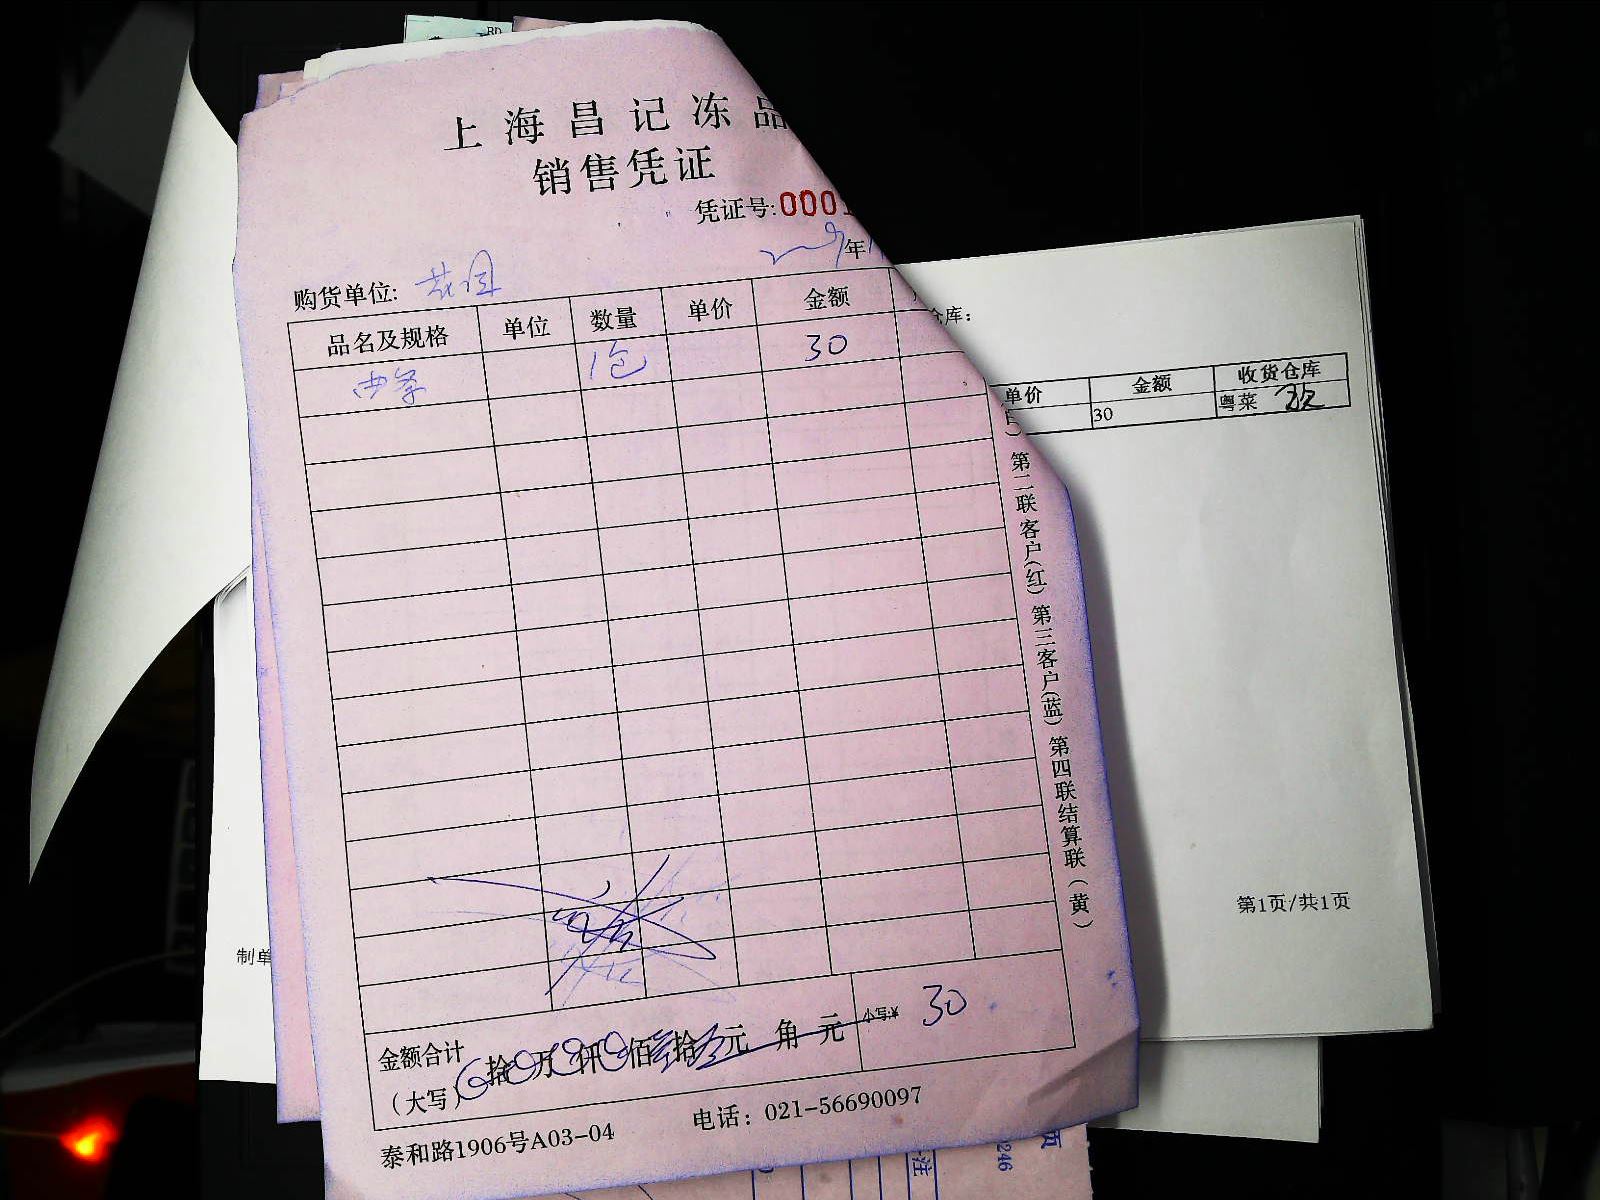 上海昌记冻品
销售凭证
凭证号:0001
年
购货单位:
品名及规格 单位 数量 单价 金额
1包 30
仓库:
单价 金额 收货仓库
30 粤菜
第二联客户(红) 第三客户(蓝) 第四联结算联(黄)
第1页/共1页
制单
金额合计
(大写) 拾 万 仟 佰 拾 元 角 元 小写:¥ 30
泰和路1906号A03-04 电话: 021-56690097
注
246
页